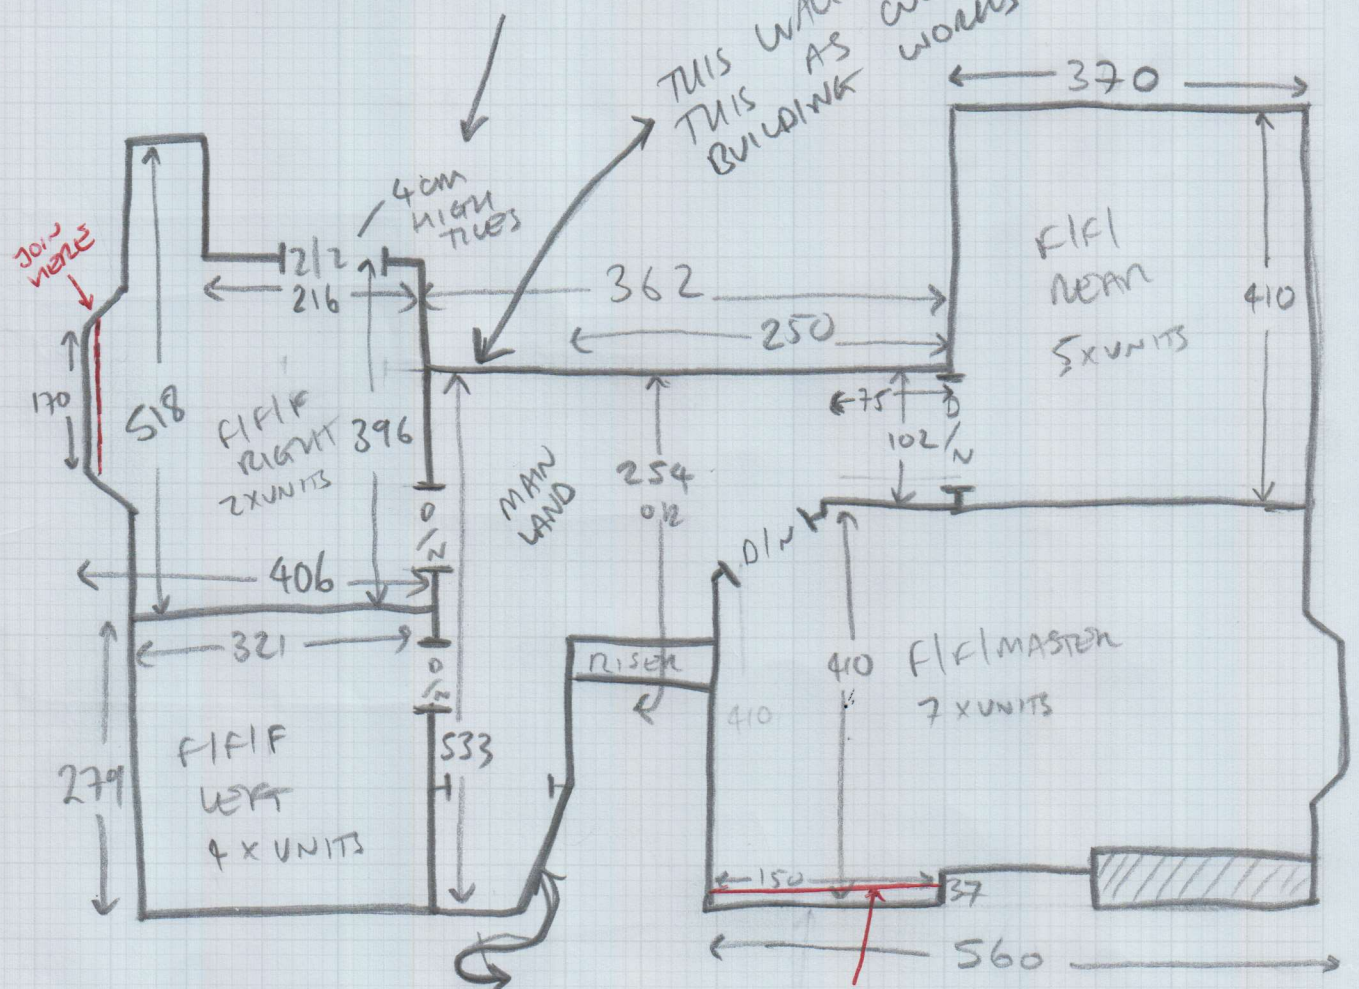 THIS
THIS AS
BUILDING WORKS
370
4cm
HIGH
TILES
JOIN
HERE
2/2
216
362
250
F/F/
REAR
5 X UNITS
410
170
518
F/F/F
RIGHT
2 X UNITS
396
75
D/N
102
MAIN
LAND
254
O/R
D/N
D/N
406
321
D/N
RISER
410
410
F/F/MASTER
7 X UNITS
279
F/F/F
LEFT
4 X UNITS
533
150
37
560